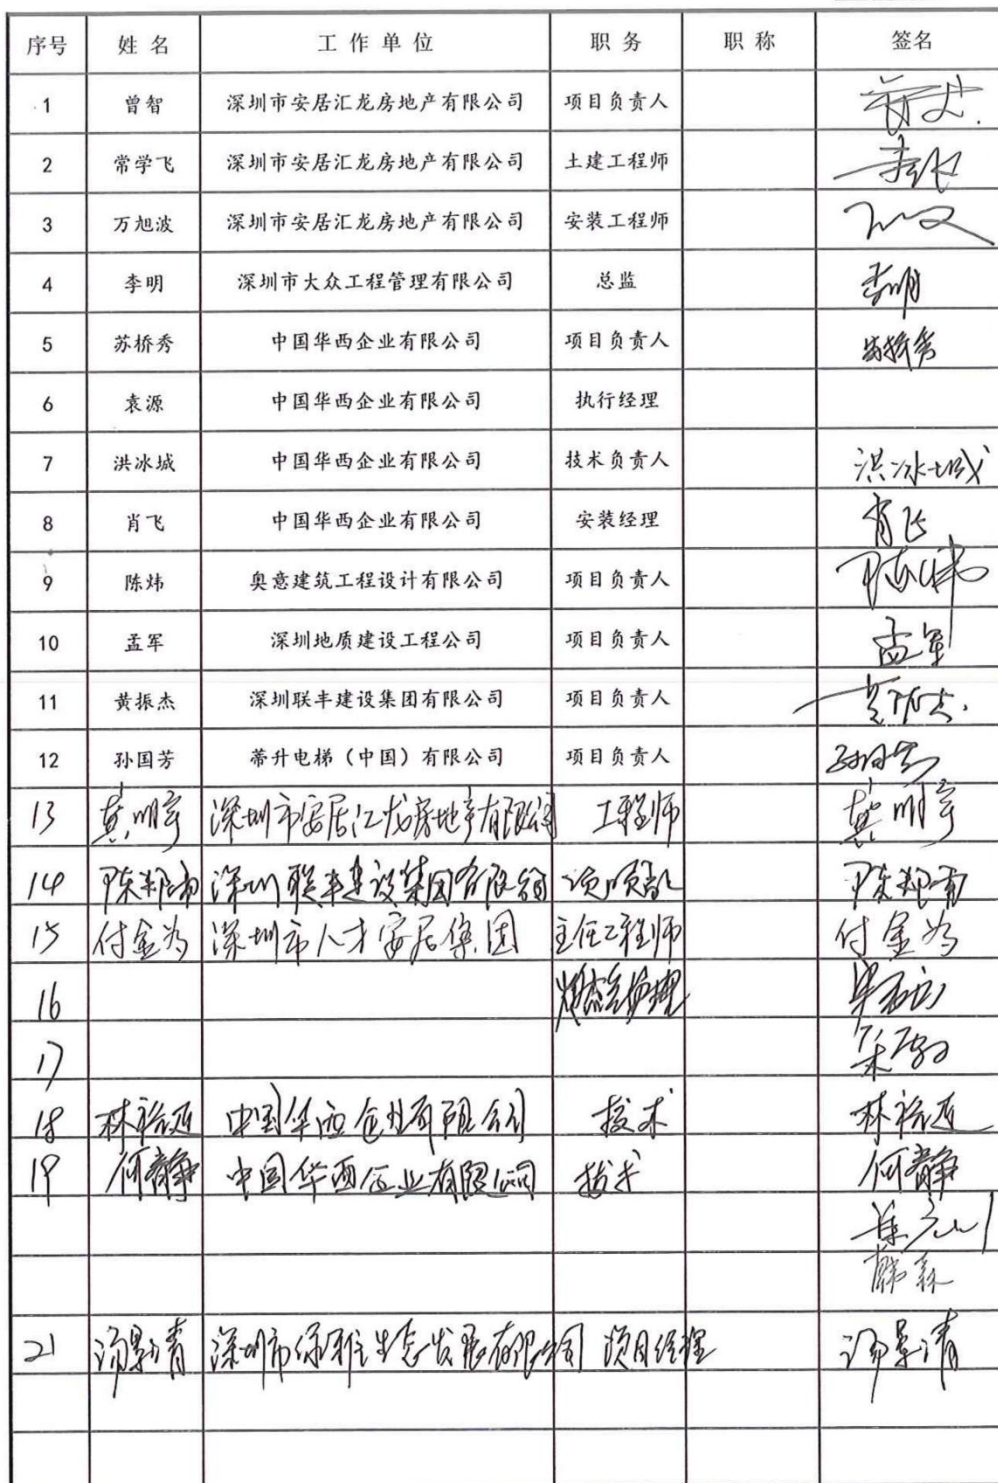 序号 姓名 工作单位 职务 职称 签名
1 曾智 深圳市安居汇龙房地产有限公司 项目负责人
2 常学飞 深圳市安居汇龙房地产有限公司 土建工程师
3 万旭波 深圳市安居汇龙房地产有限公司 安装工程师
4 李明 深圳市大众工程管理有限公司 总监 李明
5 苏桥秀 中国华西企业有限公司 项目负责人 苏桥秀
6 袁源 中国华西企业有限公司 执行经理
7 洪冰城 中国华西企业有限公司 技术负责人 洪冰城
8 肖飞 中国华西企业有限公司 安装经理 肖飞
9 陈炜 奥意建筑工程设计有限公司 项目负责人 陈炜
10 孟军 深圳地质建设工程公司 项目负责人 孟军
11 黄振杰 深圳联丰建设集团有限公司 项目负责人 黄振杰
12 孙国芳 蒂升电梯（中国）有限公司 项目负责人 孙国芳
13 龚明宇 深圳市安居汇龙房地产有限公司 工程师 龚明宇
14 深圳联丰建设集团有限公司
15 付金为 深圳市人才安居集团 主任工程师 付金为
16
17
18 中国华西企业有限公司 技术
19 何静 中国华西企业有限公司 技术 何静
韩森
21 汤景清 项目经理 汤景清